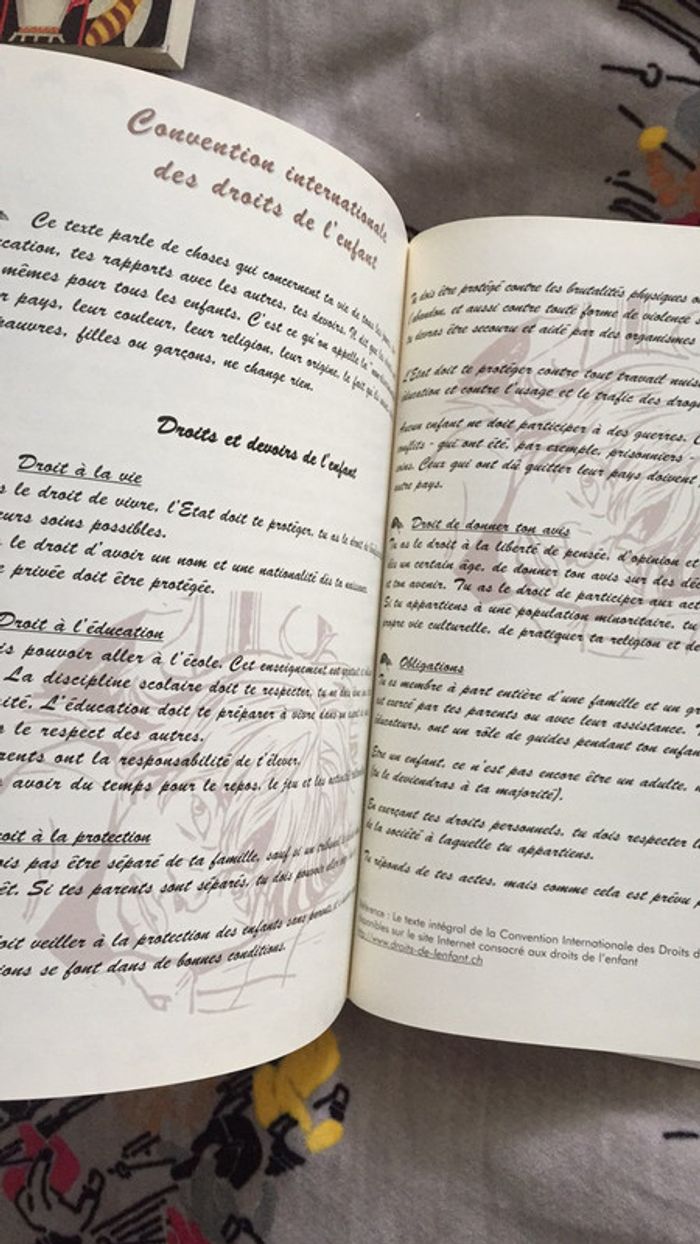 Convention internationale
des droits de l'enfant
Ce texte parle de choses qui concernent ta vie de tous les jours,
tes rapports avec les autres, tes devoirs. Il dit que les
mêmes pour tous les enfants. C'est ce qu'on appelle la
pays, leur couleur, leur religion, leur origine, le fait qu'ils
pauvres, filles ou garçons, ne change rien.
Droits et devoirs de l'enfant
Droit à la vie
le droit de vivre, l'Etat doit te protéger, tu as le droit de
soins possibles.
le droit d'avoir un nom et une nationalité dès ta naissance.
privée doit être protégée.
Droit à l'éducation
pouvoir aller à l'école. Cet enseignement est
La discipline scolaire doit te respecter, tu ne dois
L'éducation doit te préparer à vivre dans un
le respect des autres.
ont la responsabilité de t'élever.
avoir du temps pour le repos, le jeu et les activités
à la protection
pas être séparé de ta famille, sauf si un tribunal
Si tes parents sont séparés, tu dois pouvoir
veiller à la protection des enfants sans parents,
se font dans de bonnes conditions.
Tu dois être protégé contre les brutalités physiques ou
l'abandon, et aussi contre toute forme de violence
devras être secouru et aidé par des organismes
L'Etat doit te protéger contre tout travail
éducation et contre l'usage et le trafic des
Aucun enfant ne doit participer à des guerres.
conflits - qui ont été, par exemple, prisonniers -
soins. Ceux qui ont dû quitter leur pays doivent
autre pays.
Droit de donner ton avis
Tu as le droit à la liberté de pensée, d'opinion et
dès un certain âge, de donner ton avis sur des
et ton avenir. Tu as le droit de participer aux
Si tu appartiens à une population minoritaire, tu
propre vie culturelle, de pratiquer ta religion et de
Obligations
Tu es membre à part entière d'une famille et un
est exercé par tes parents ou avec leur assistance.
éducateurs, ont un rôle de guides pendant ton
Etre un enfant, ce n'est pas encore être un adulte,
(tu le deviendras à ta majorité).
En exerçant tes droits personnels, tu dois respecter
de la société à laquelle tu appartiens.
Tu réponds de tes actes, mais comme cela est prévu
Référence : Le texte intégral de la Convention Internationale des Droits
disponibles sur le site Internet consacré aux droits de l'enfant
http://www.droits-de-lenfant.ch